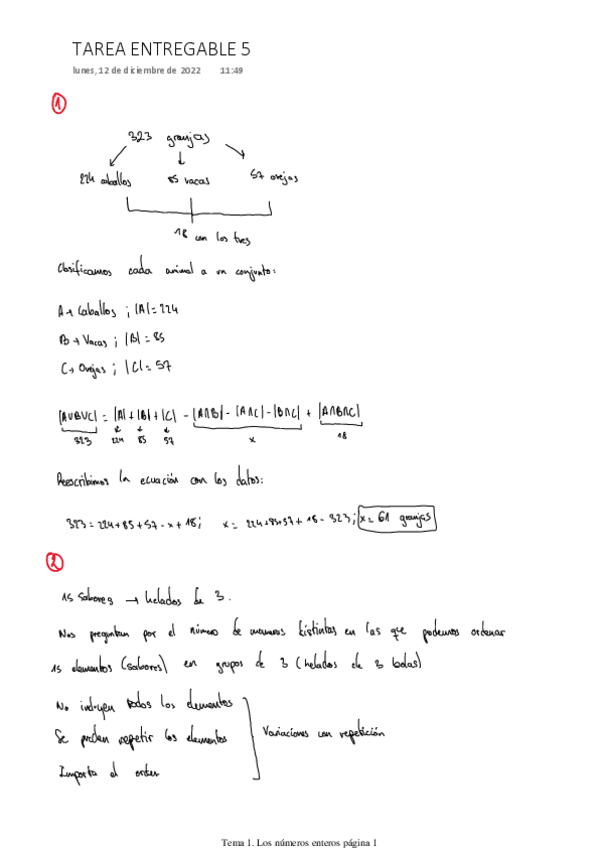 TAREA ENTREGABLE 5
lunes, 12 de diciembre de 2022 11:49
1
323 granjas
224 caballos 85 vacas 57 ovejas
18 con los tres
Clasificamos cada animal a un conjunto:
A → Caballos ; |A| = 224
B → Vacas ; |B| = 85
C → Ovejas ; |C| = 57
|A∪B∪C| = |A| + |B| + |C| - |A∩B| - |A∩C| - |B∩C| + |A∩B∩C|
323 224 85 57 x 18
Reescribimos la ecuación con los datos:
323 = 224 + 85 + 57 - x + 18 ; x = 224 + 85 + 57 + 18 - 323 ; x = 61 granjas
2
15 sabores → helados de 3.
Nos preguntan por el número de maneras distintas en las que podemos ordenar
15 elementos (sabores) en grupos de 3 (helados de 3 bolas)
No incluyen todos los elementos
Se pueden repetir los elementos
Variaciones con repetición
Importa el orden
Tema 1. Los números enteros página 1